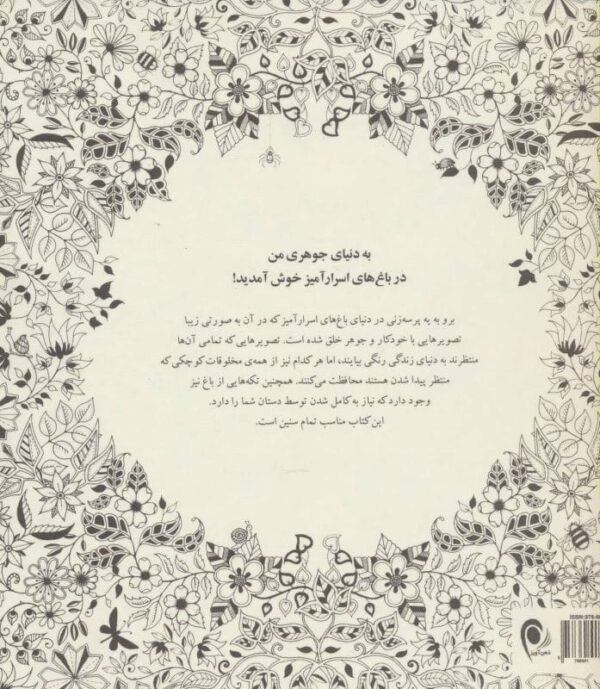 به دنیای جوهری من
در باغ‌های اسرارآمیز خوش آمدید!
برو به یه پرسه‌زنی در دنیای باغ‌های اسرارآمیز که در آن به صورتی زیبا
تصویرهایی با خودکار و جوهر خلق شده است. تصویرهایی که تمامی آن‌ها
منتظرند به دنیای زندگی رنگی بیایند، اما هر کدام نیز از همه‌ی مخلوقات کوچکی که
منتظر پیدا شدن هستند محافظت می‌کنند. همچنین تکه‌هایی از باغ نیز
وجود دارد که نیاز به کامل شدن توسط دستان شما را دارد.
این کتاب مناسب تمام سنین است.
ذهن‌آویز